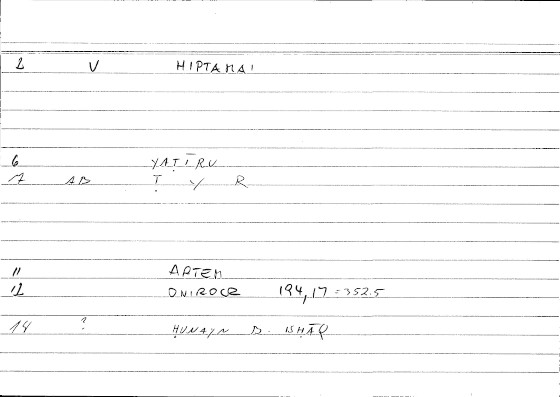 2 V HIPTAMAI
6 YAṬĪRU
7 AB Ṭ Y R
11 ARTEM
12 ONIROCR 194,17=352.5
14 ? ḤUNAYN B. ISḤĀQ